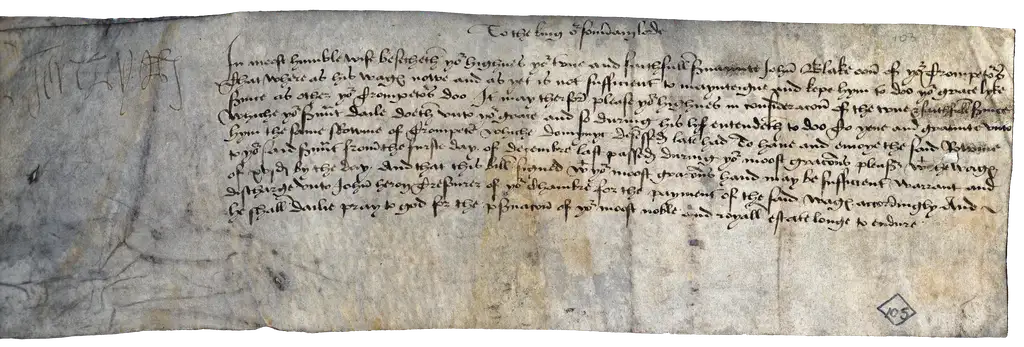 To the king oʳ souldainlorde
In moost humble wise besechetħ yoʳ highnes yoʳ true and faithfull sṽnnte Johñ Blake oon of yoʳ Trompetꝭ
That where as his wagꝭ nowe and as yet is not sufficient to mayntegne and kepe hym to doo yoʳ grace lyke
sṽice as other yoʳ Trompetꝭ doo It may therfor please yoʳ highnes in consideracõn of the true & faithfull sṽice
whiche yoʳ sṽnt dailie doeth unto yoʳ grace and so during his lyf entendeth to doo To yeue and graunte unto
hym the same Rowme of Trompetꝭ whiche Domynyc decessed late had To haue and enioye the said Rowme
to yoʳ said sṽnt from the furste day of decembre last passed during yoʳ moost gracious pleasꝭ wᵗ the wagꝭ
of xvjd by the day And that this bill signed wᵗ yoʳ moost gracious hand may be sufficient warrant and
discharge unto John heron Tresourer of yoʳ Chambre for the payment of the said wagꝭ accordingly And
he shall dailie pray to god for the pṽuacõn of yoʳ moost noble and royall estate longe to endure
103
105